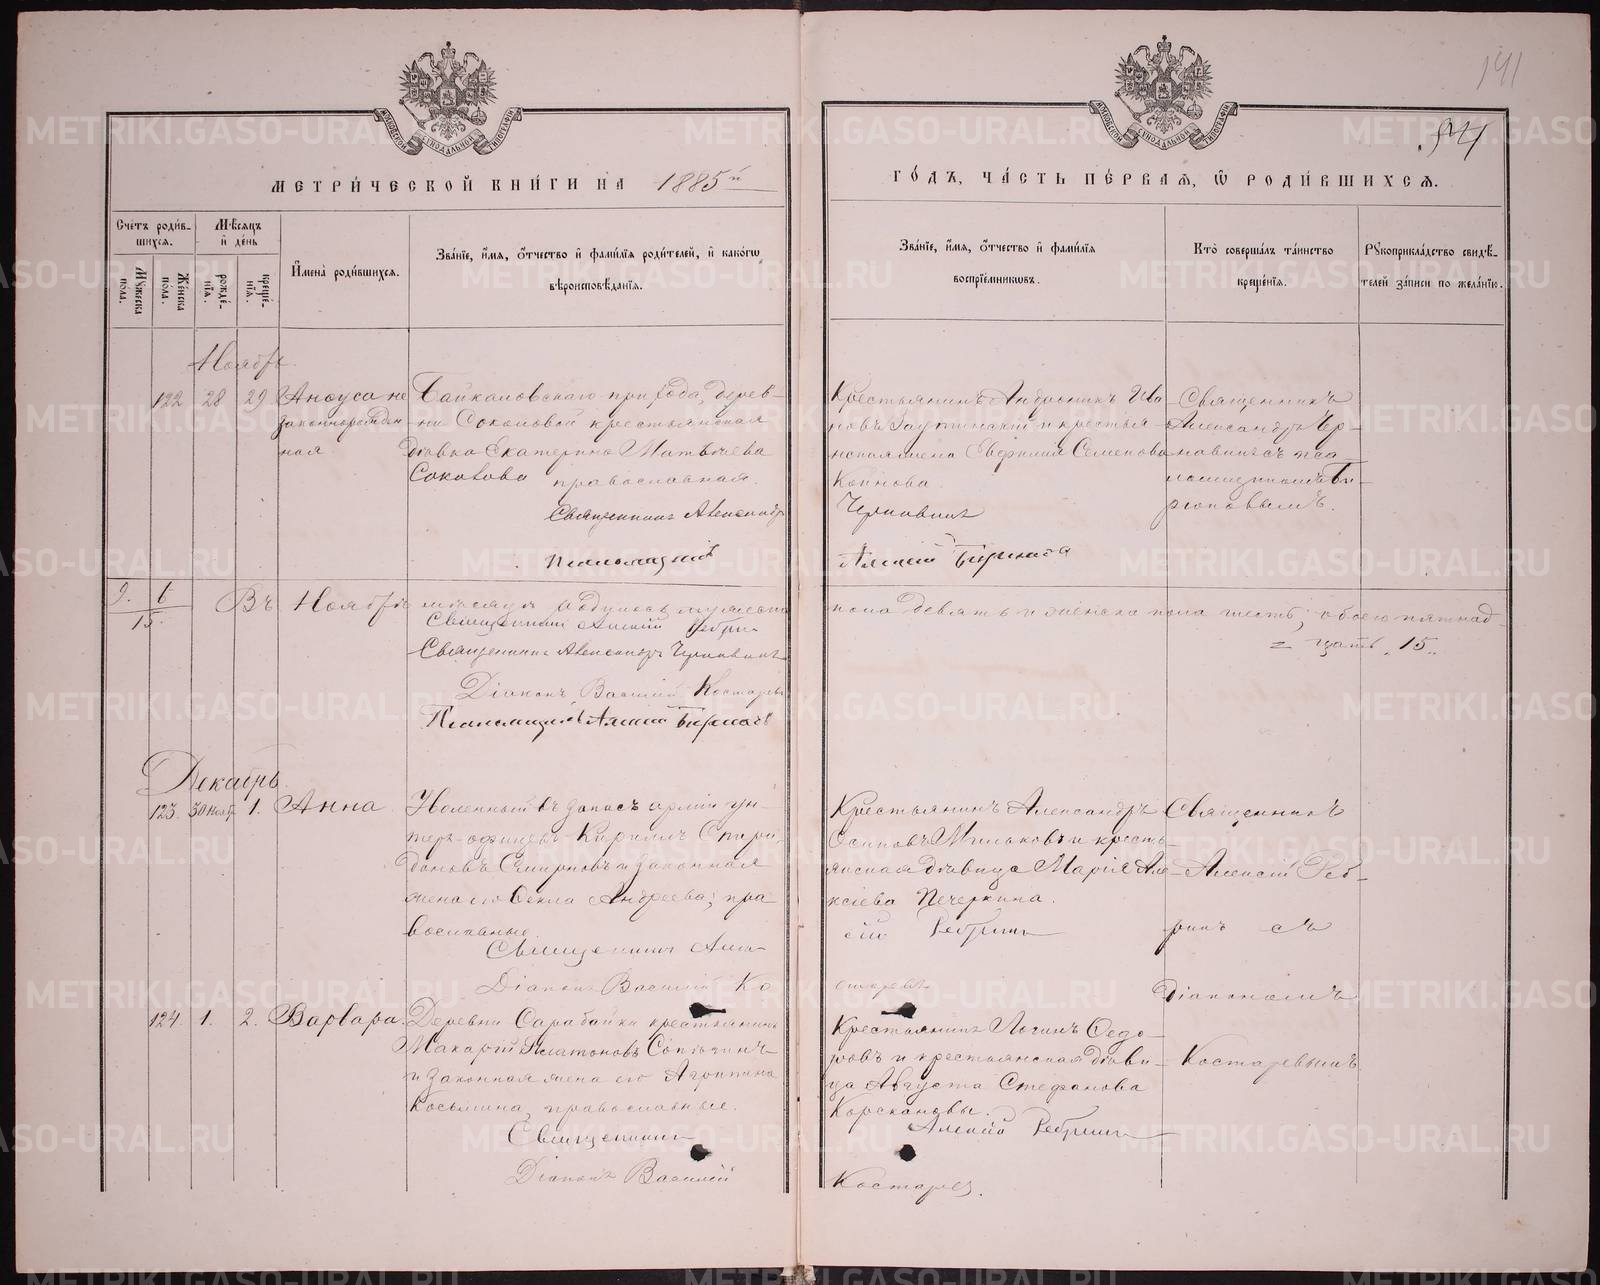 141
94
МЕТРИ́ЧЕСКОЙ КНИ́ГИ НА 1885й
ГО́ДЪ, ЧА́СТЬ ПЕ́РВАЯ, Ѿ РОДИ́ВШИХСЯ.
Сче́тъ роди́в-
шихся.
Мѣ́сяцъ
и де́нь
Му́жеска
по́ла.
Же́нска
по́ла.
рожде́-
нія.
креще́-
нія.
Имена̀ роди́вшихся.
Зва́ніе, и́мя, о́тчество и фами́лія роди́телей, и како́гѡ
вѣроисповѣ́данія.
Зва́ніе, и́мя, о́тчество и фами́лія
воспріе́мниковъ.
Кто̀ соверша́лъ та́инство
креще́нія.
Рукоприкла́дство свидѣ́-
телей за́писи по жела́нію.
Ноябрь.
122 28 29 Анѳуса не
законнорожден
ная
Байкаловскаго прихода, дерев-
ни Соколовой крестьянская
дѣвка Екатерина Матвѣева
Соколова православная.
Священникъ Александръ
Псаломщикъ
Крестьянинъ Андроникъ Ива
новъ и крестья
нская жена Евфимія Семенова
Коинова
Чернавинъ
Алексій Бирюковъ
Священникъ
Александръ Чер-
навинъ съ пса-
ломщикомъ Би-
рюковымъ.
9. 6
15.
Въ Ноябрѣ мѣсяцѣ родилось мужеска
пола девять и женска пола шесть; обоего пятнад-
= цать „15„
Священникъ Алексій Ребринъ
Священникъ Александръ Чернавинъ
Діаконъ Василій Костаревъ
Псаломщикъ Алексій Бирюковъ
Декабрь
123. 30 Нояб. 1. Анна
Уволенный въ запасъ арміи ун-
теръ-офицеръ Кириллъ Спири-
доновъ Смирновъ и законная
жена его Ѳекла Андреева; пра-
вославные.
Священникъ Алек
Діаконъ Василій Ко
Крестьянинъ Александръ
Осиповъ Мильковъ и кресть-
янская дѣвица Марія Але-
ксіева Печеркина.
сій Ребринъ
старевъ
Священникъ
Алексій Реб-
ринъ съ
Діакономъ
Костаревымъ
124. 1. 2. Варвара.
Деревни Сарабайки крестьянинъ
Макарій Платоновъ
и законная жена его Агрипина
Косьмина, православные.
Священникъ
Діаконъ Василій
Крестьянинъ Логинъ Ѳедо-
ровъ и крестьянская дѣви-
ца Августа Стефанова
Корскановы.
Алексій Ребринъ
Костаревъ.